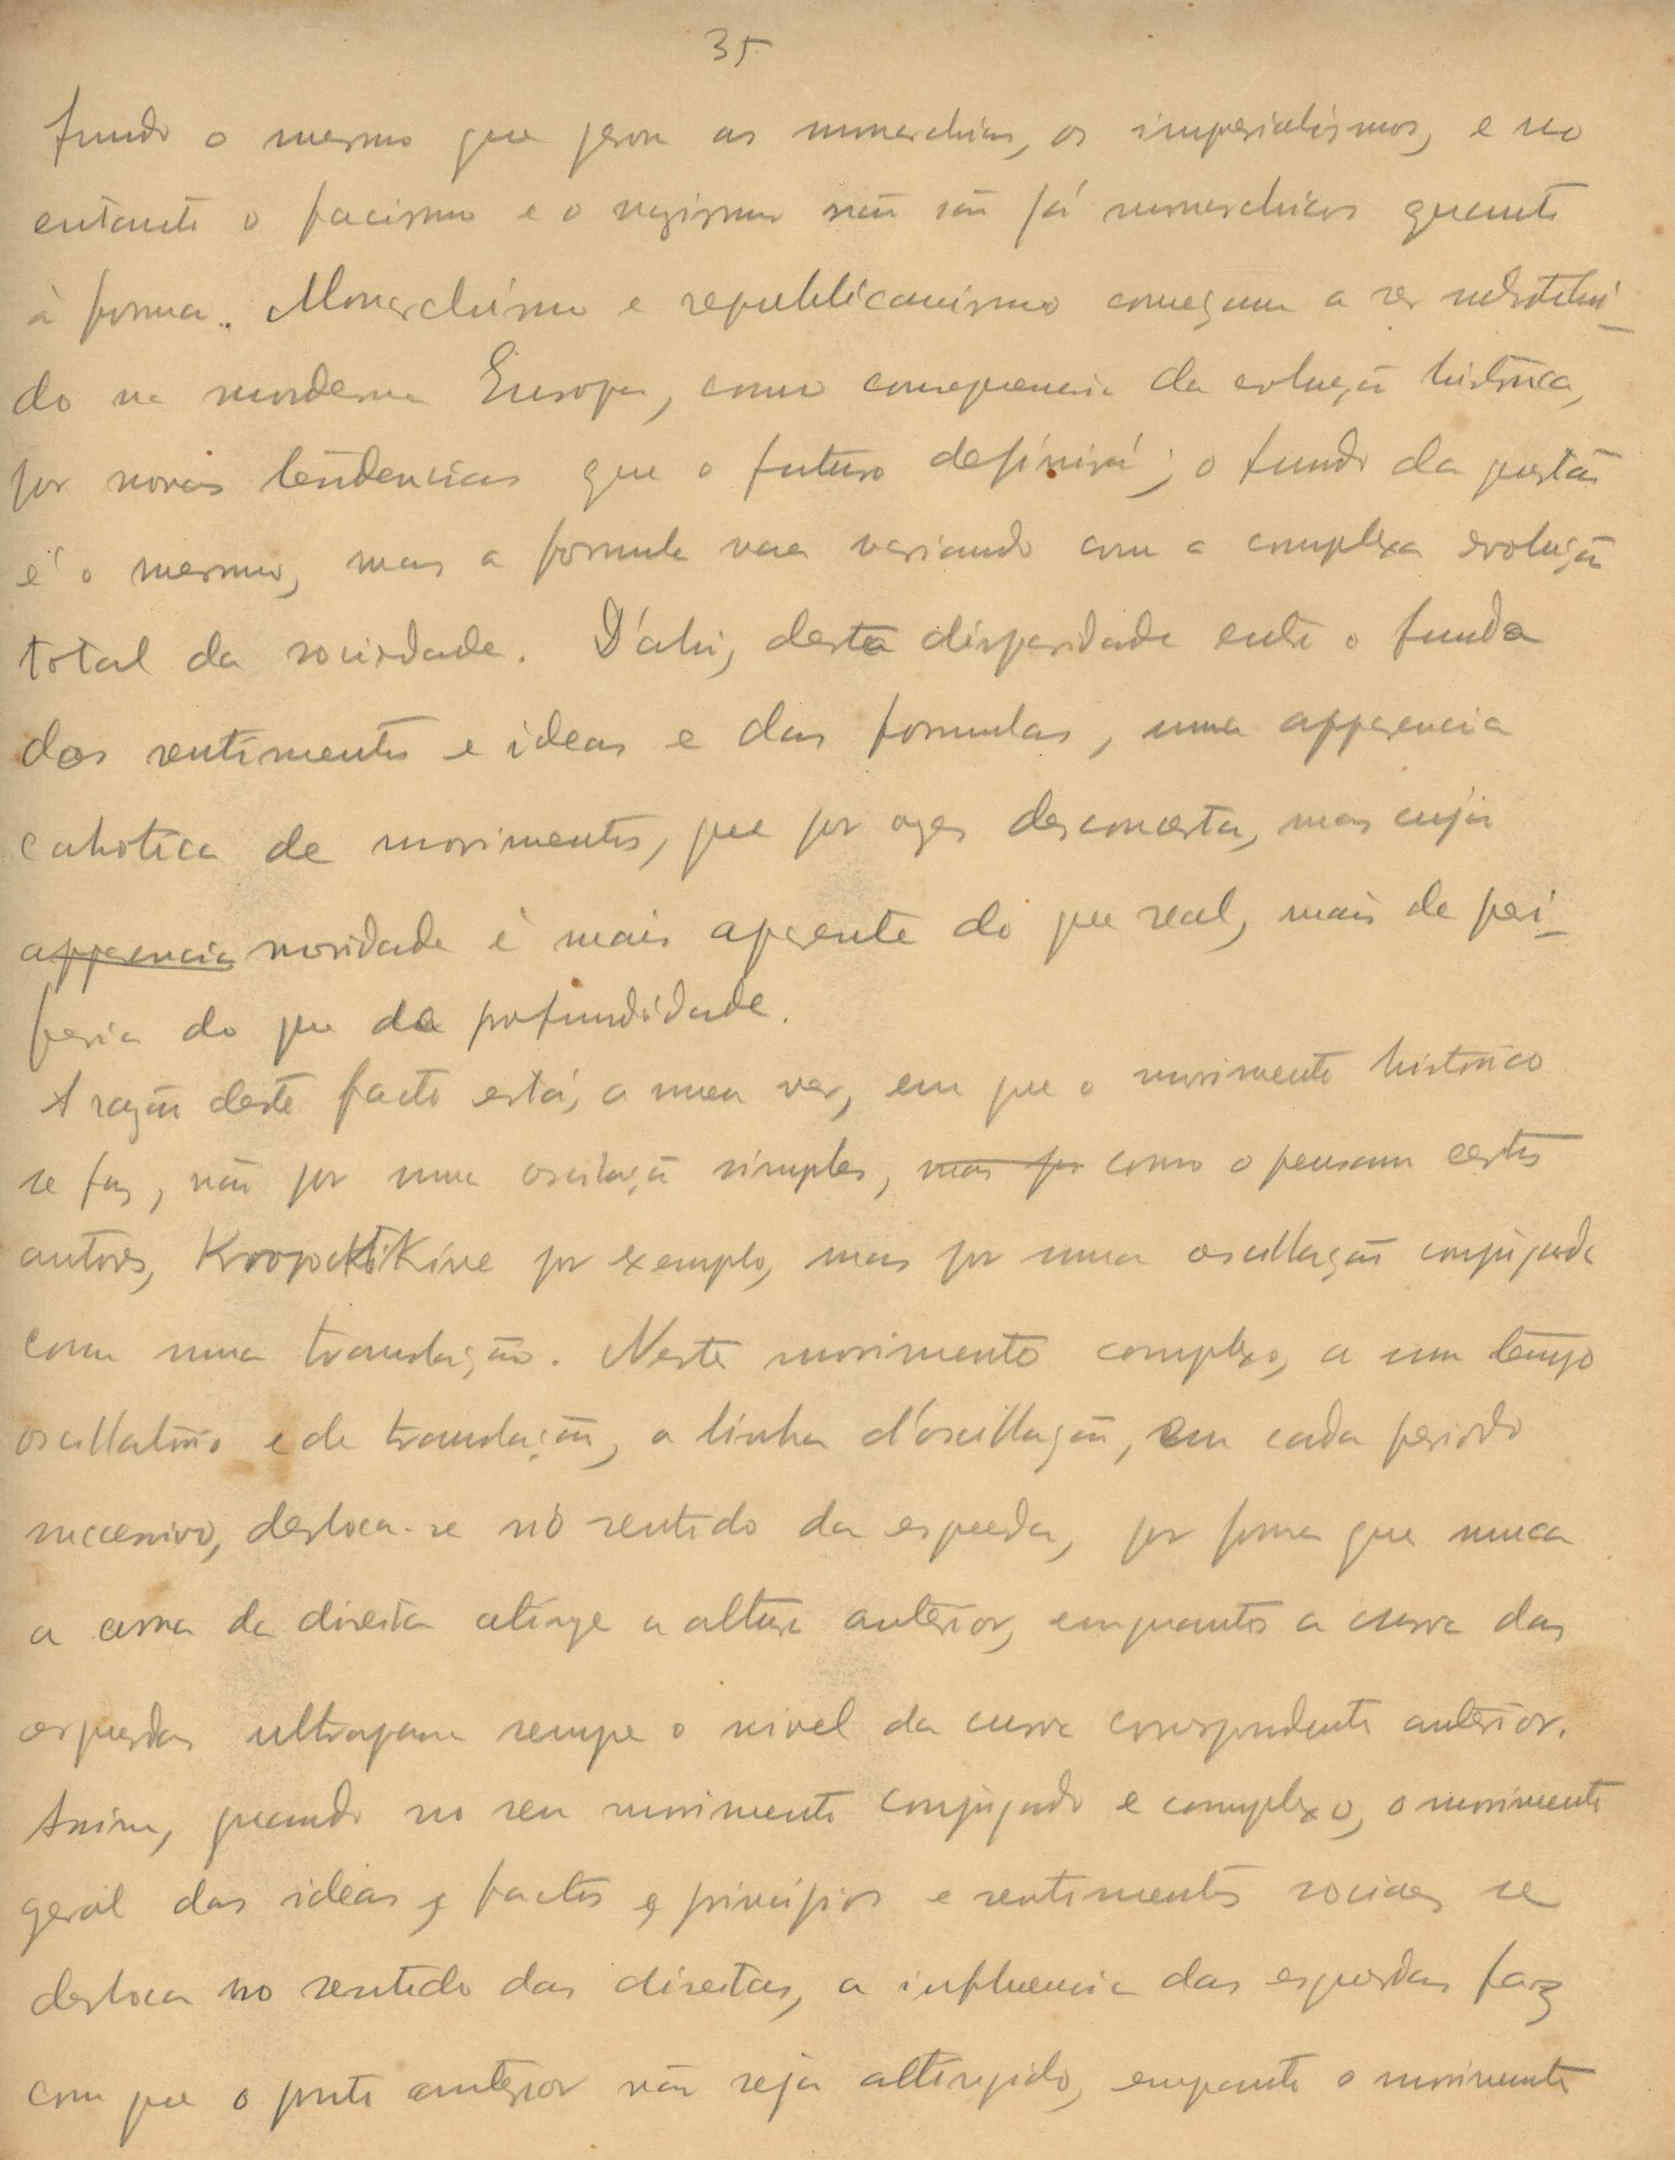 35
fundo o mesmo que gerou as monarchias, os imperialismos, e no
entanto o facismo e o nazismo não são já monarchicos quanto
à forma. Monarchismo e republicanismo começam a ser substitui-
do na moderna Europa, como consequencia da evolução historica,
por novas tendencias que o futuro definirá; o fundo da questão
é o mesmo, mas a formula vae variando com a complexa evolução
total da sociedade. D'ahi, desta disparidade entre o fundo
dos sentimentos e ideas e das formulas, uma apparencia
cahotica de movimentos, que por vezes desconcerta, mas cuja
apparencia novidade é mais aparente do que real, mais de peri-
feria do que de profundidade.
A razão deste facto está, a meu ver, em que o movimento historico
se faz, não por uma oscilação simples, mas por como o pensam certos
autores, Kropotkine por exemplo, mas por uma oscillação conjugada
com uma translação. Neste movimento complexo, a um tempo
oscillatorio e de translação, a linha d'oscillação, em cada periodo
successivo, desloca-se no sentido da esquerda, por forma que nunca
a curva da direita atinge a altura anterior, emquanto a curva das
esquerdas ultrapassa sempre o nivel da curva correspondente anterior.
Assim, quando no seu movimento conjugado e complexo, o movimento
geral das ideas, factos, principios e sentimentos sociaes se
desloca no sentido das direitas, a influencia das esquerdas faz
com que o ponto anterior não seja attingido, emquanto o movimento